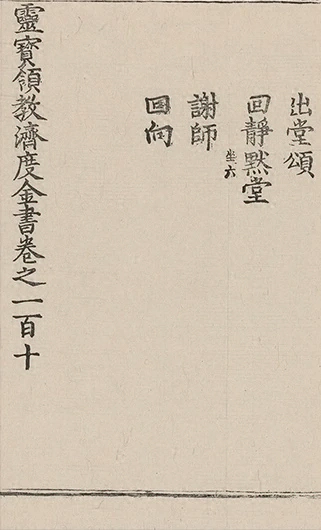 出堂頌
回靜默堂
坐六
謝師
回向
靈寶領教濟度金書卷之一百十